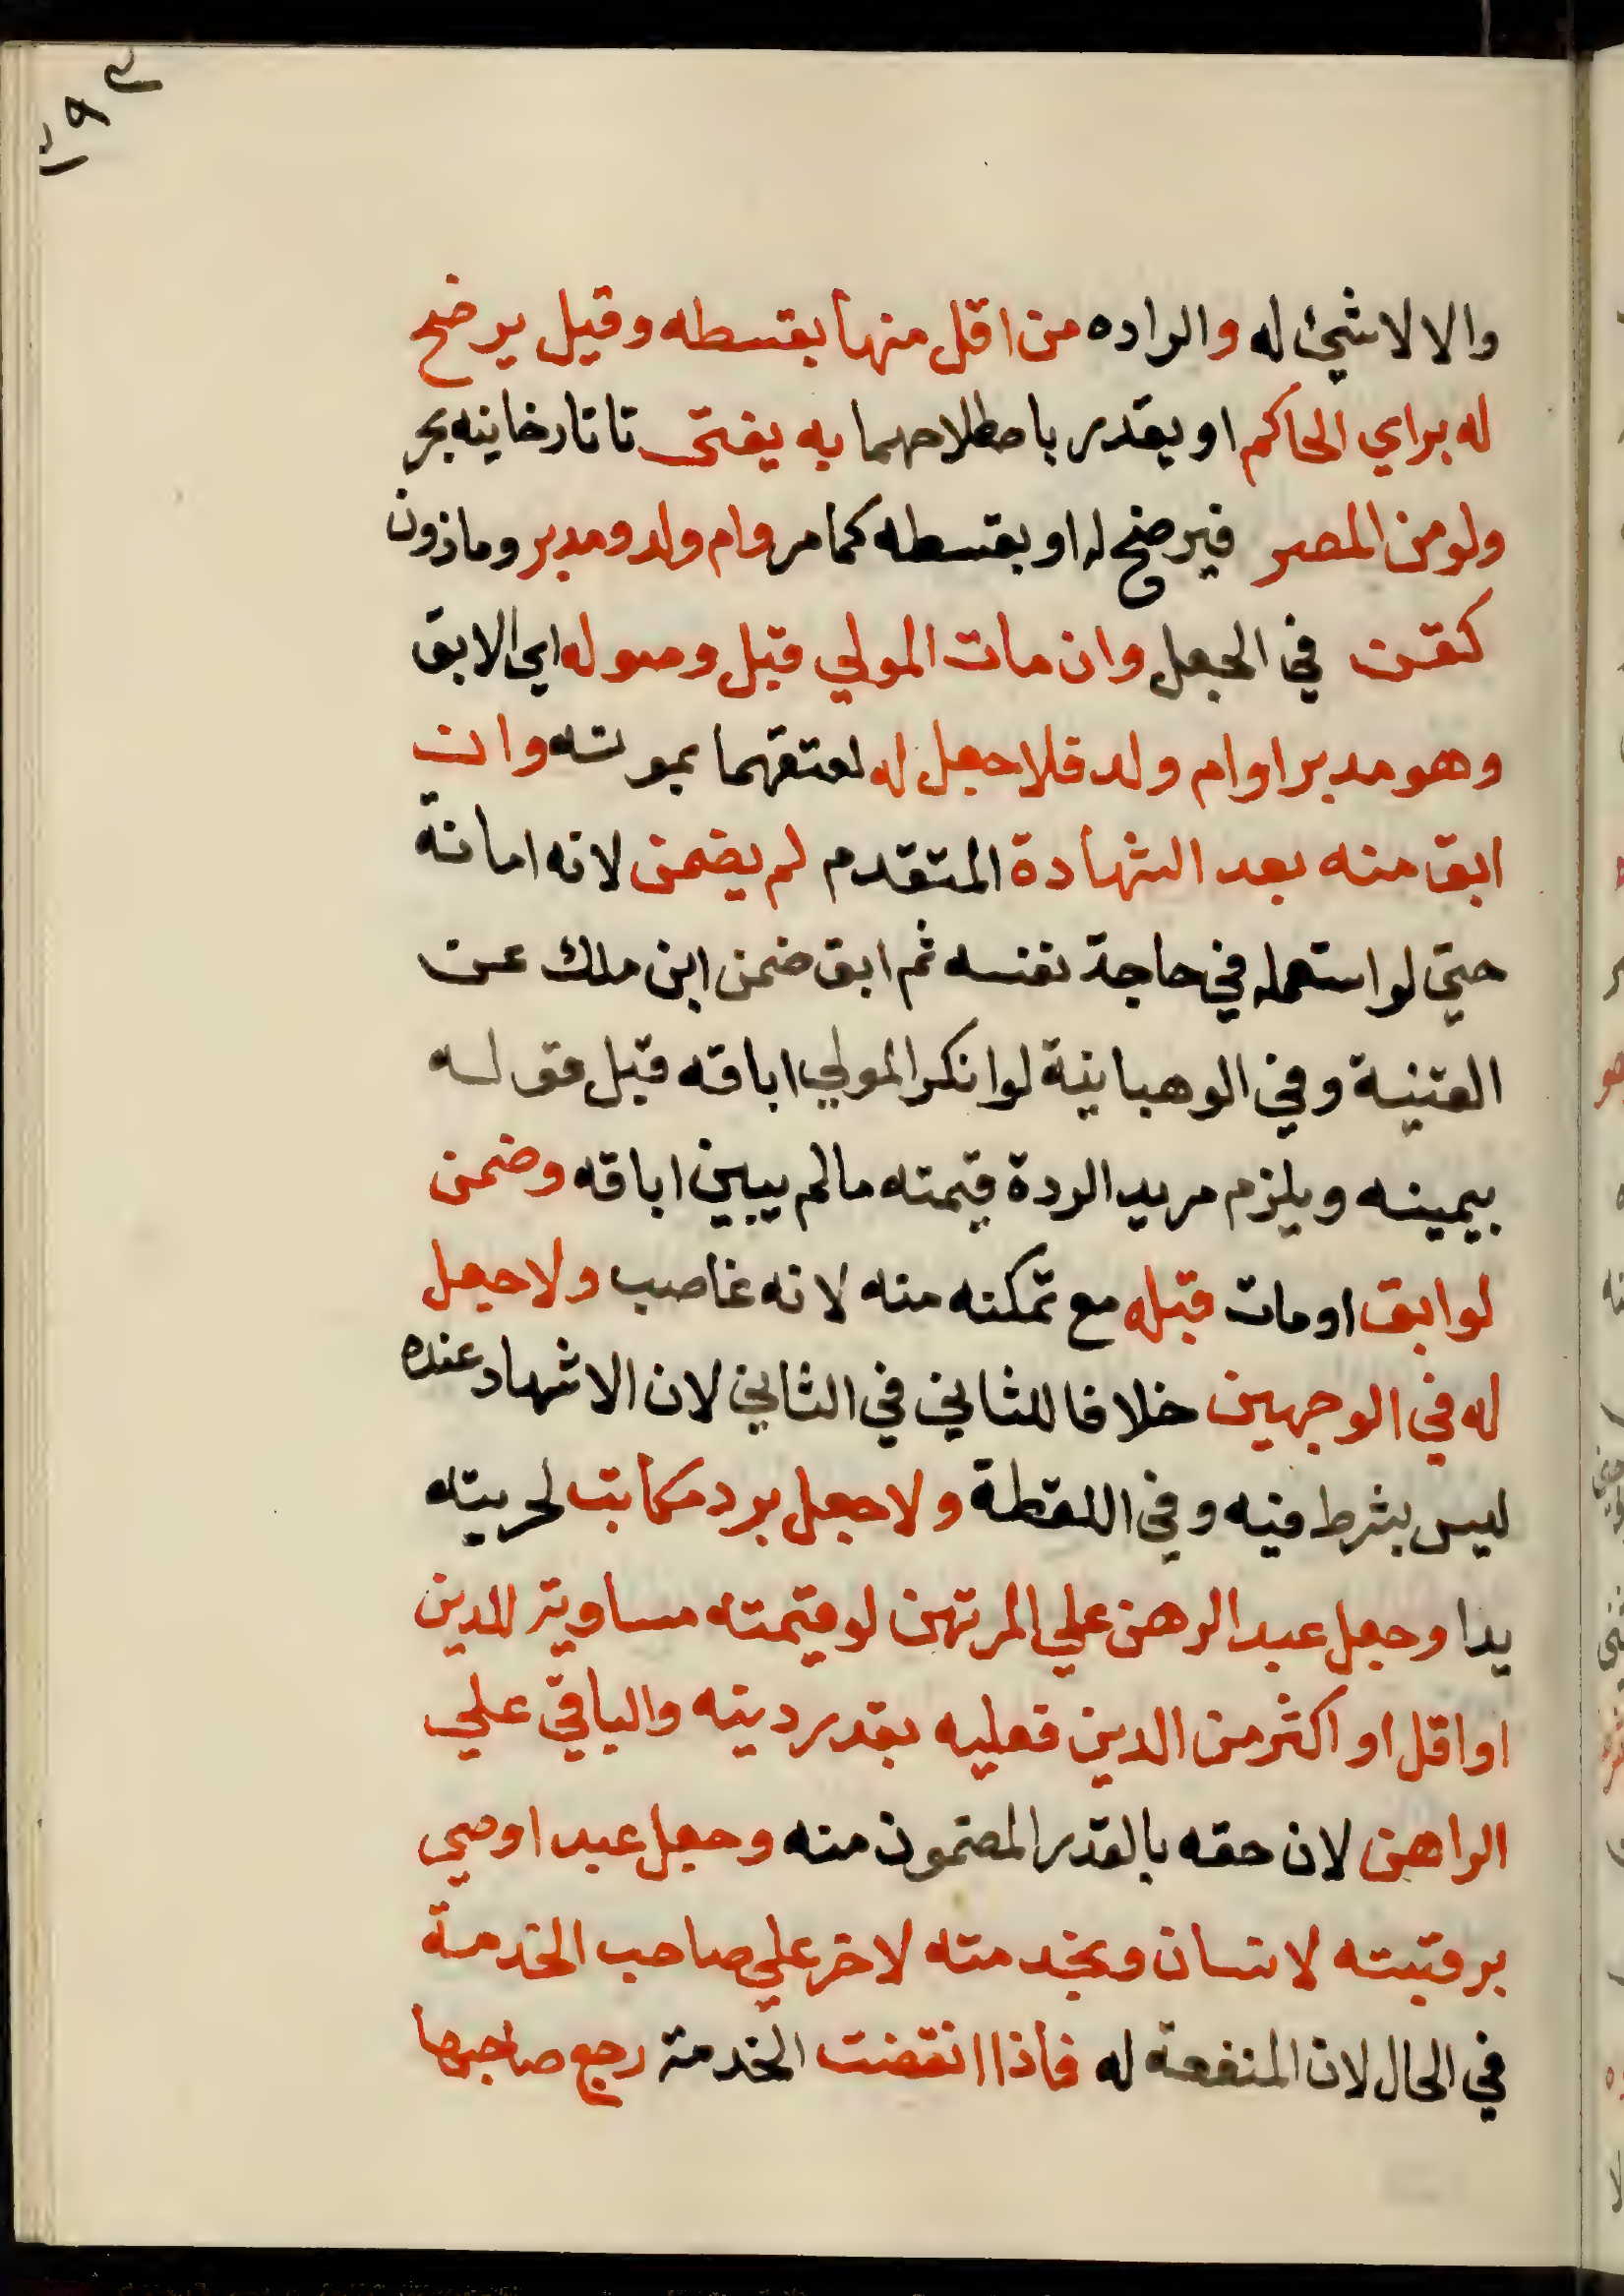 ١٩٣
والا لا شئ له والراده من اقل منها بقسطه وقيل يرضخ
له براي الحاكم او يقدر باصطلاحهما به يفتى تاتارخانيه بحر
ولو من المصر فيرضخ له او بقسطه كما مر وام ولد ومدبر وماذون
كقن في الجعل وان مات المولي قبل وصوله اي الابق
وهو مدبر او ام ولد فلا جعل له لعتقهما بموته وان
ابق منه بعد الشهادة المتقدم لم يضمن لانه امانة
حتي لو استعمله في حاجة نفسه ثم ابق ضمن ابن ملك عن
القنية وفي الوهبانية لو انكر المولي اباقه قبل قوله
بيمينه ويلزم مريد الردة قيمته ما لم يبين اباقه وضمن
لو ابق او مات قبله مع تمكنه منه لانه غاصب ولا جعل
له في الوجهين خلافا للثاني في الثاني لان الاشهاد عنده
ليس بشرط فيه وفي اللقطة ولا جعل برد مكاتب لحريته
يدا وجعل عبد الرهن علي المرتهن لو قيمته مساوية للدين
او اقل او اكثر من الدين فعليه بقدر دينه والباقي علي
الراهن لان حقه بالقدر المضمون منه وجعل عبد اوصي
برقبته لانسان وبخدمته لاخر علي صاحب الخدمة
في الحال لان المنفعة له فاذا انقضت الخدمة رجع صاحبها